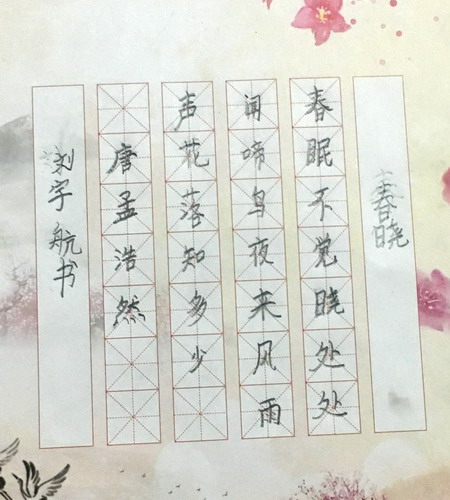 春晓
春眠不觉晓处处
闻啼鸟夜来风雨
声花落知多少
唐孟浩然
刘宇航书